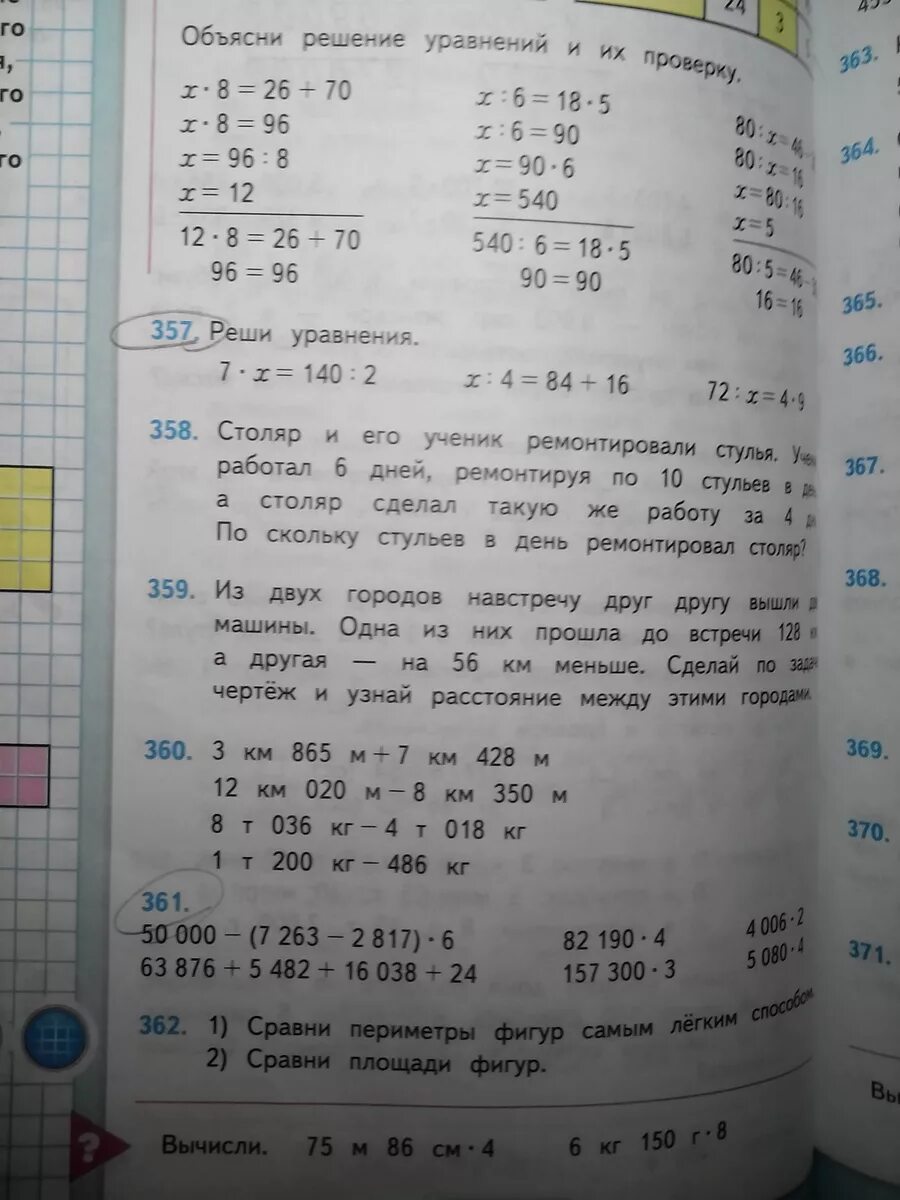 го
я,
го
го
24
3
Объясни решение уравнений и их проверку.
x · 8 = 26 + 70
x · 8 = 96
x = 96 : 8
x = 12
12 · 8 = 26 + 70
96 = 96
x : 6 = 18 · 5
x : 6 = 90
x = 90 · 6
x = 540
540 : 6 = 18 · 5
90 = 90
80 : x = 46 -
80 : x = 16
x = 80 : 16
x = 5
80 : 5 = 46 -
16 = 16
357. Реши уравнения.
7 · x = 140 : 2 x : 4 = 84 + 16 72 : x = 4 · 9
358. Столяр и его ученик ремонтировали стулья.
работал 6 дней, ремонтируя по 10 стульев в
а столяр сделал такую же работу за 4
По скольку стульев в день ремонтировал столяр?
359. Из двух городов навстречу друг другу вышли
машины. Одна из них прошла до встречи 128
а другая — на 56 км меньше. Сделай по
чертёж и узнай расстояние между этими городами.
360. 3 км 865 м + 7 км 428 м
12 км 020 м − 8 км 350 м
8 т 036 кг − 4 т 018 кг
1 т 200 кг − 486 кг
361.
50 000 − (7 263 − 2 817) · 6 82 190 · 4 4 006 · 2
63 876 + 5 482 + 16 038 + 24 157 300 · 3 5 080 · 4
362. 1) Сравни периметры фигур самым лёгким способом.
2) Сравни площади фигур.
?
Вычисли. 75 м 86 см · 4 6 кг 150 г · 8
363.
364.
365.
366.
367.
368.
369.
370.
371.
Вы